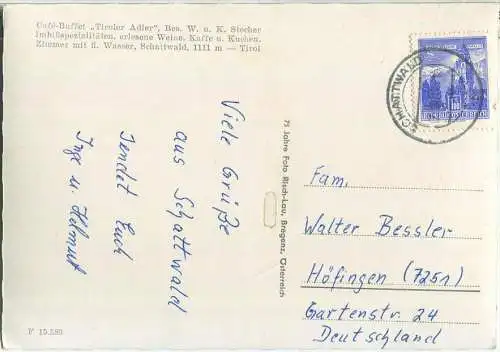 Café-Buffet „Tiroler Adler", Bes. W. u. K. Stecher
Imbißspezialitäten, erlesene Weine, Kaffe u. Kuchen.
Zimmer mit fl. Wasser, Schattwald, 1111 m — Tirol
Viele Grüße
aus Schattwald
sendet Euch
Inge u. Helmut
75 Jahre Foto Risch-Lau, Bregenz, Österreich
SCHATTWALD
Fam.
Walter Bessler
Höfingen (7251)
Gartenstr. 24
Deutschland
F 15.580